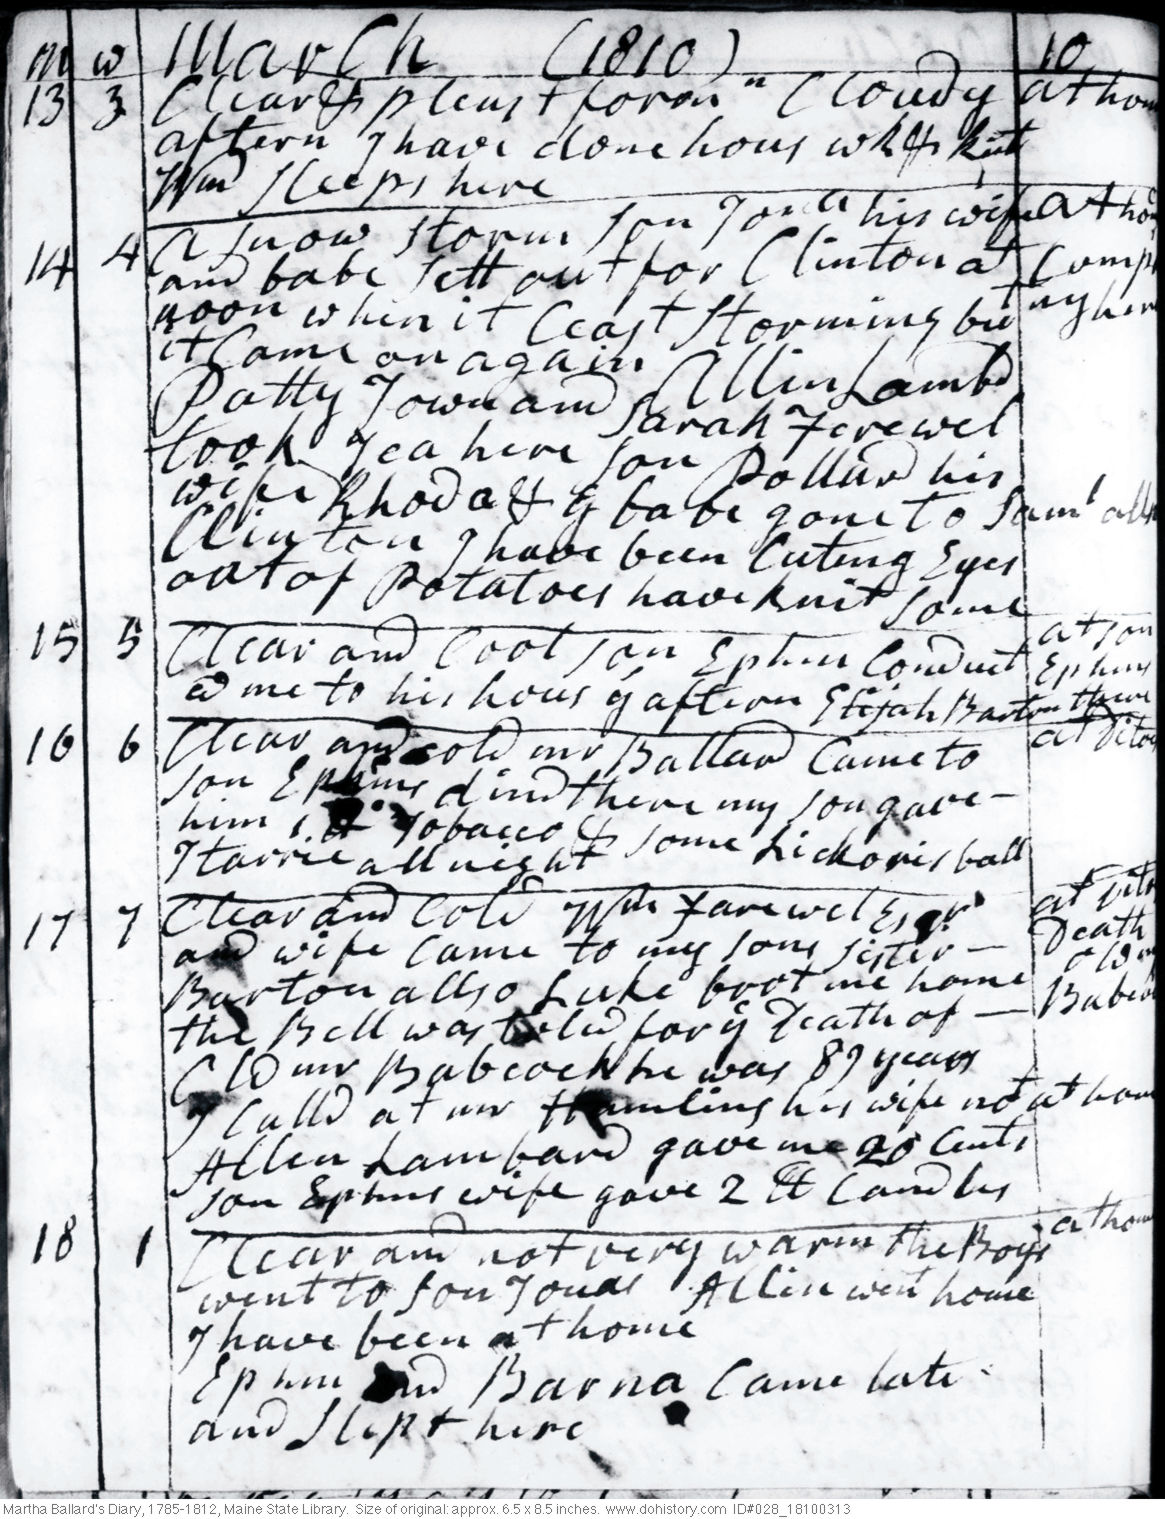 m w March (1810) 10
13 3 Clear & pleast foron n Cloudy at hom
aftern I have done hous wk & knit
Wm sleeps here
14 4 A snow storm son Jona his wife at hom
and babe sett out for Clinton at Comp
noon when it Ceast storming but ny here
it Came on again
Patty Town and Allin Lambd
Sarah Ferewel
took Tea here son Pollard his
wife Rhoda & y babe gone to Saml all
Clinton I have been Cuting Eyes
out of Potatoes have knit some
15 5 Clear and Cool son Ephm Conduct at son
ed me to his hous y aftern Elijah Barton there Ephms
16 6 Clear and cold mr Ballard Came to at Ditos
son Ephms dind there my son gave
him 1 lb Tobacco & some hickoris ball
I tarrie all night
17 7 Clear and Cold Wm Farewel Esqr at Dito
and wife Came to my sons sister Death
Barton allso Luke brot me home old mr
the Bell was toled for y Death of Babcok
Old mr Babcock he was 87 years
I Calld at mr Hamlins his wife not at home
Allen Lambard gave me 20 Cents
son Ephms wife gave 2 lb Candles
18 1 Clear and not very warm the Boys at hom
went to son Jonas Allin went home
I have been at home
Ephm and Barna Came late
and slept here
Martha Ballard's Diary, 1785-1812, Maine State Library. Size of original: approx. 6.5 x 8.5 inches. www.dohistory.com ID#028_18100313